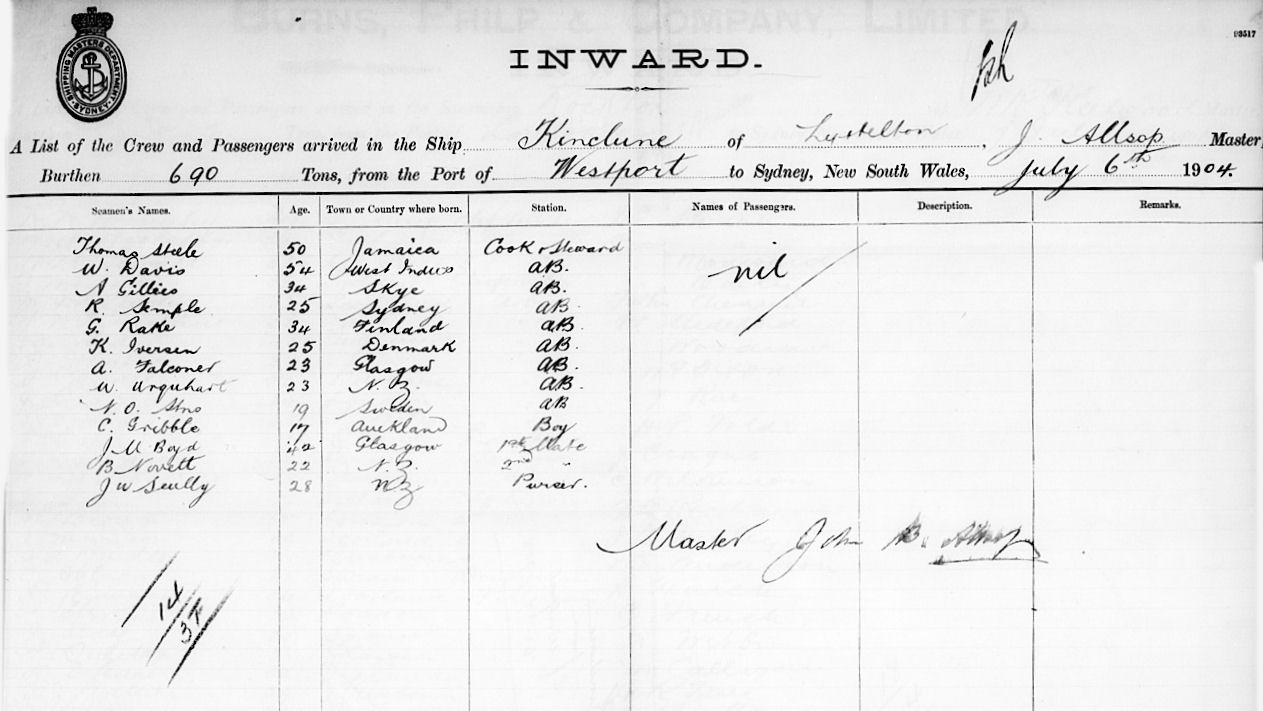 INWARD.
93517
SHIPPING MASTERS DEPARTMENT SYDNEY
A List of the Crew and Passengers arrived in the Ship Kinclune of Lyttelton, J. Allsop Master,
Burthen 690 Tons, from the Port of Westport to Sydney, New South Wales, July 6th 1904.
Seamen's Names. Age. Town or Country where born. Station. Names of Passengers. Description. Remarks.
Thomas Steele 50 Jamaica Cook & Steward
W. Davis 54 West Indies AB. nil
A Gillies 34 Skye AB.
R. Semple 25 Sydney AB
G. Rake 34 Finland AB
K. Iversen 25 Denmark AB.
A. Falconer 23 Glasgow AB.
W. Urquhart 23 N.Z. AB.
N. O. 19 Sweden AB
C. Gribble 17 Auckland Boy
J M Boyd 42 Glasgow 1st Mate
B Novett 22 N.Z. 2nd "
J W Scully 28 NZ Purser.
Master John B. Allsop
14
37